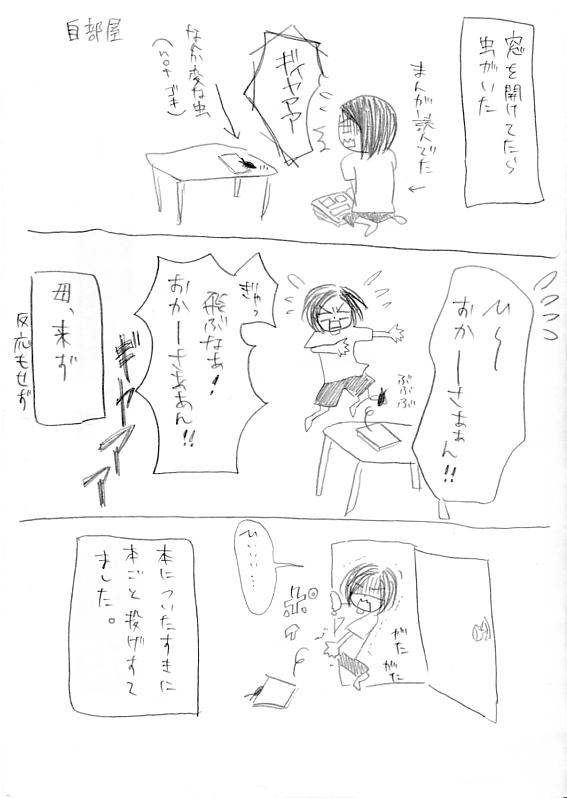 窓を開けてたら
虫がいた
まんが読んでた
ギィヤァァァ
なんか変な虫
(notゴキ)
自部屋
ひ〜〜
おかーさぁぁん!!
ぶぶぶ
ぎゃっ
飛ぶなぁ!
おかーさぁあん!!
ギャアアア
母、来ず
反応もせず
がた
がた
ポイ
ひぃぃぃ…
本についたすきに
本ごと投げすて
ました。